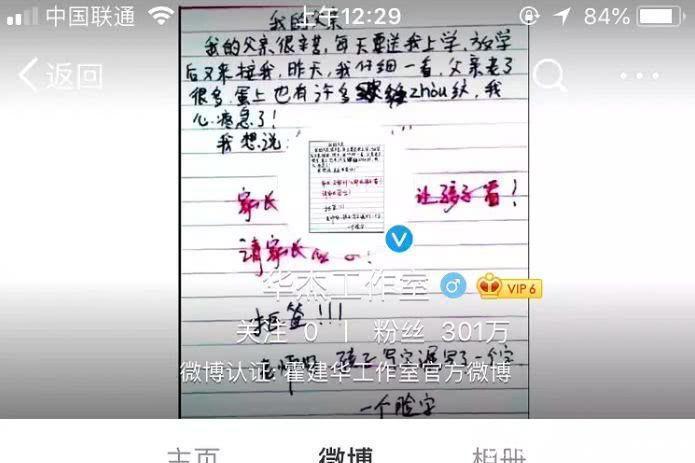 中国联通
上午12:29
84%
我的父亲
我的父亲很辛苦,每天要送我上学,放学
返回
后又来接我,昨天,我仔细一看,父亲老了
很多,蛋上也有许多zhōu纹,我
心疼急了!
我想说:
家长
让孩子看!
请家长
华杰工作室
VIP 6
拒签!!!
关注 0 | 粉丝 301万
老师好,孩子写字漏写了一个字
微博认证:霍建华工作室官方微博
一个脸字
主页
微博
相册